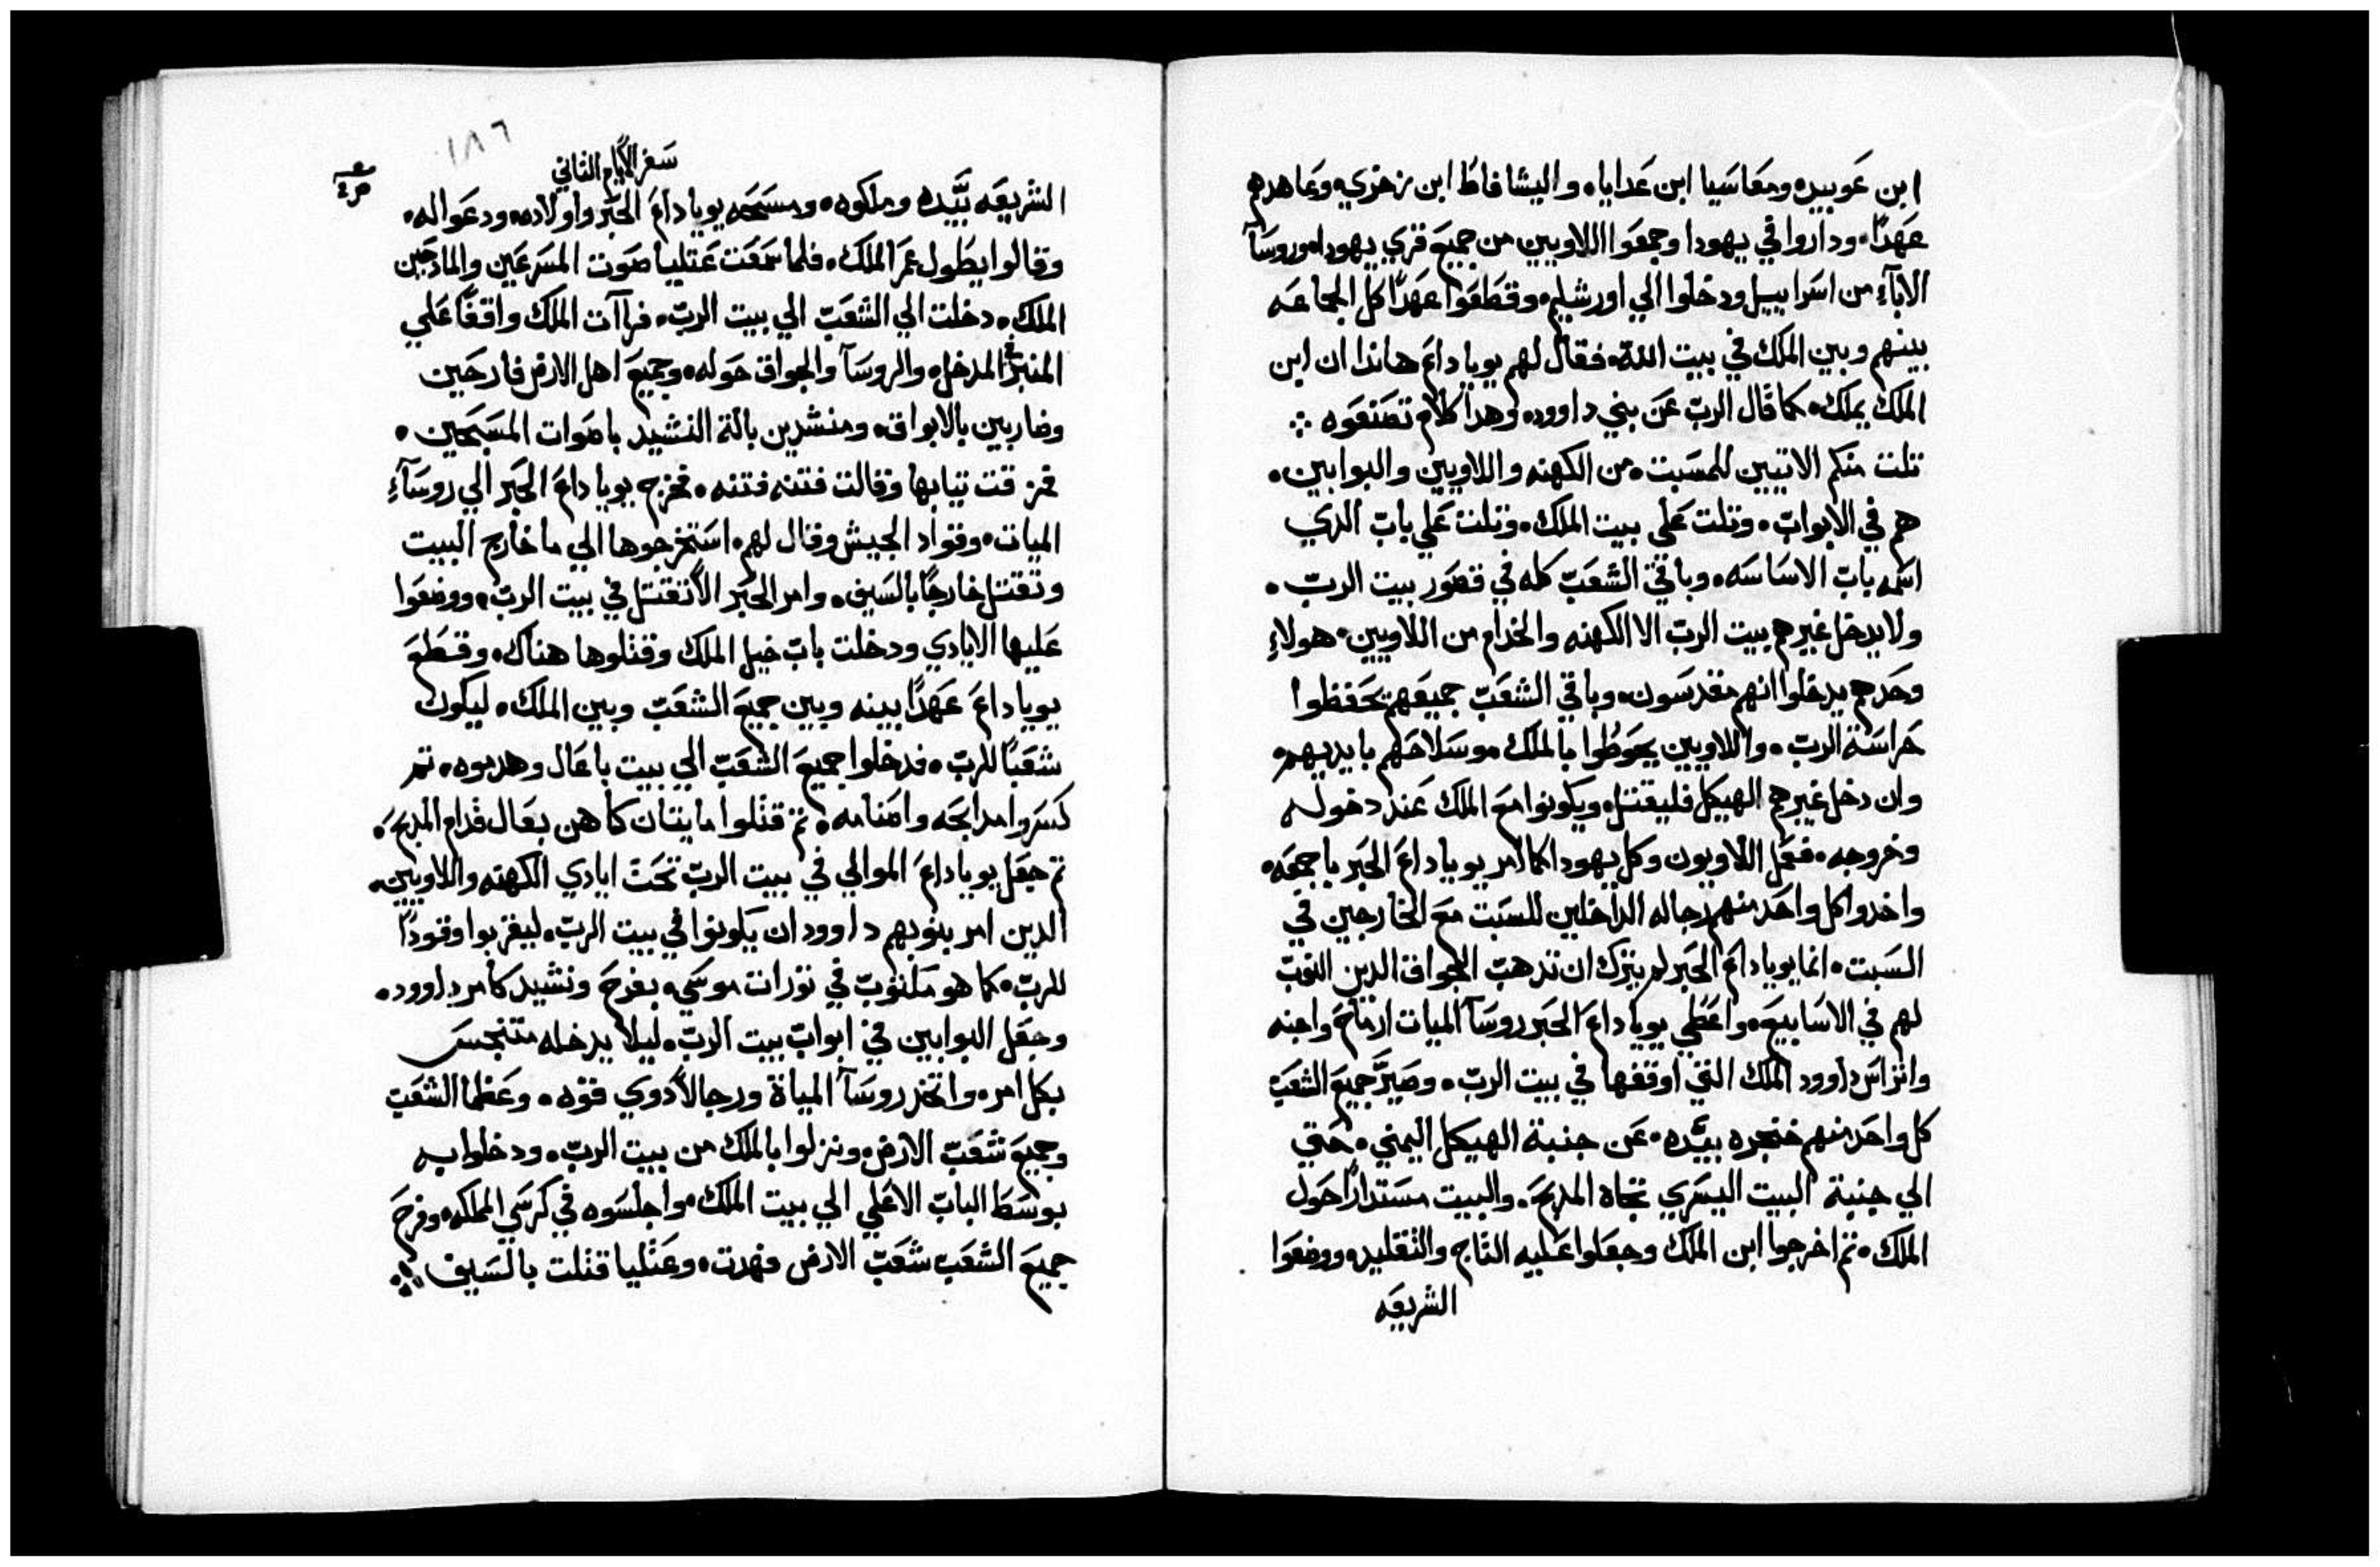 ابن عوبيده ومعاسيا ابن عدايا، واليشافاط ابن زخري، وعاهدهم
عهدًا، وداروا في يهودا وجمعوا اللاويين من جميع قري يهودا، وروسآ
الابآء من اسراييل ودخلوا الي اورشليم، وقطعوا عهدًا كل الجماعه
بينهم وبين الملك في بيت الله، فقال لهم يوياداع هاندا ان ابن
الملك يملك، كما قال الرب عن بني داوود، وهدا كلام تصنعوه ⁘
تلت منكم الاتيين للمسبت، من الكهنه واللاويين والبوابين،
هم في الابواب، وتلت علي بيت الملك، وتلت علي باب الدي
اسمه باب الاساسه، وباقي الشعب كله في قصور بيت الرب،
ولا يدخل غيرهم بيت الرب الا الكهنه والخدام من اللاويين، هولاء
وحدهم يدخلوا انهم مقدسون، وباقي الشعب جميعهم تحفظوا
حراسة الرب، واللاويين يحوطوا بالملك موسلاحهم بايديهم،
وان دخل غيرهم الهيكل فليقتل، ويكونوا مع الملك عند دخوله
وخروجه، ففعل اللاويون وكل يهودا كما امر يوياداع الحبر باجمعه،
واخدوا كل واحد منهم رجاله الداخلين للسبت مع الخارجين في
السبت، انما يوياداع الحبر لم يترك ان تدهب الجواق الدين النوبت
لهم في الاسابيع، واعطي يوياداع الحبر روسآ الميات ارماح واجنه
واتراس داوود الملك التي اوقفها في بيت الرب، وصيَّر جميع الشعب
كل واحد منهم خنجره بيَّده، عن جنبة الهيكل اليمني، حتي
الي جنبة البيت اليسري تجاه المدبح، والبيت مستدارًا حول
الملك، تم اخرجوا ابن الملك وجعلوا عليه التاج والتقليد، ووضعوا
الشريعه
١٨٦
سفر الايام التاني
الشريعه بيَّده وملكوه، ومسحه يوياداع الحبر واولاده، ودعوا له،
وقالوا يطول عمر الملك، فلما سمعت عتليا صوت المسرعين والمادحين
الملك، دخلت الي الشعب الي بيت الرب، فراات الملك واقفًا علي
المنبر في المدخل، والروسآ والجواق حوله، وجميع اهل الارض فارحين
وضاربين بالابواق، ومنشدين بالة النشيد باصوات المسبحين،
فمزقت تيابها وقالت فتنه فتنه، فخرج يوياداع الحبر الي روسآء
الميات، وقواد الجيش وقال لهم، استخرجوها الي ما خارج البيت
وتقتل خارجًا بالسيف، وامر الحبر الا تقتل في بيت الرب، ووضعوا
عليها الايادي ودخلت باب خيل الملك وقتلوها هناك، وقطع
يوياداع عهدًا بينه وبين جميع الشعب وبين الملك، ليكون
شعبًا للرب، فدخلوا جميع الشعب الي بيت باعال وهدموه، تم
كسروا مدابحه واصنامه، تم قتلوا ماينتان كاهن بعال قدام المدبح،
تم جعل يوياداع الموالي في بيت الرب تحت ايادي الكهنه واللاويين،
الدين امر بنوبهم داوود ان يكونوا في بيت الرب، ليقربوا وقودًا
للرب، كما هو مكتوب في تورات موسي، بفرح ونشيد كامر داوود،
وجعل البوابين في ابواب بيت الرب، ليلا يدخله متنجس
بكل امر، واتخد روسآ المياة ورجالاً دوي قوه، وعظما الشعب
وجميع شعب الارض، ونزلوا بالملك من بيت الرب، ودخلوا به
بوسط الباب الاعلي الي بيت الملك، واجلسوه في كرسي المملكه، وفرح
جميع الشعب شعب الارض فهدت، وعتليا قتلت بالسيف ⁘